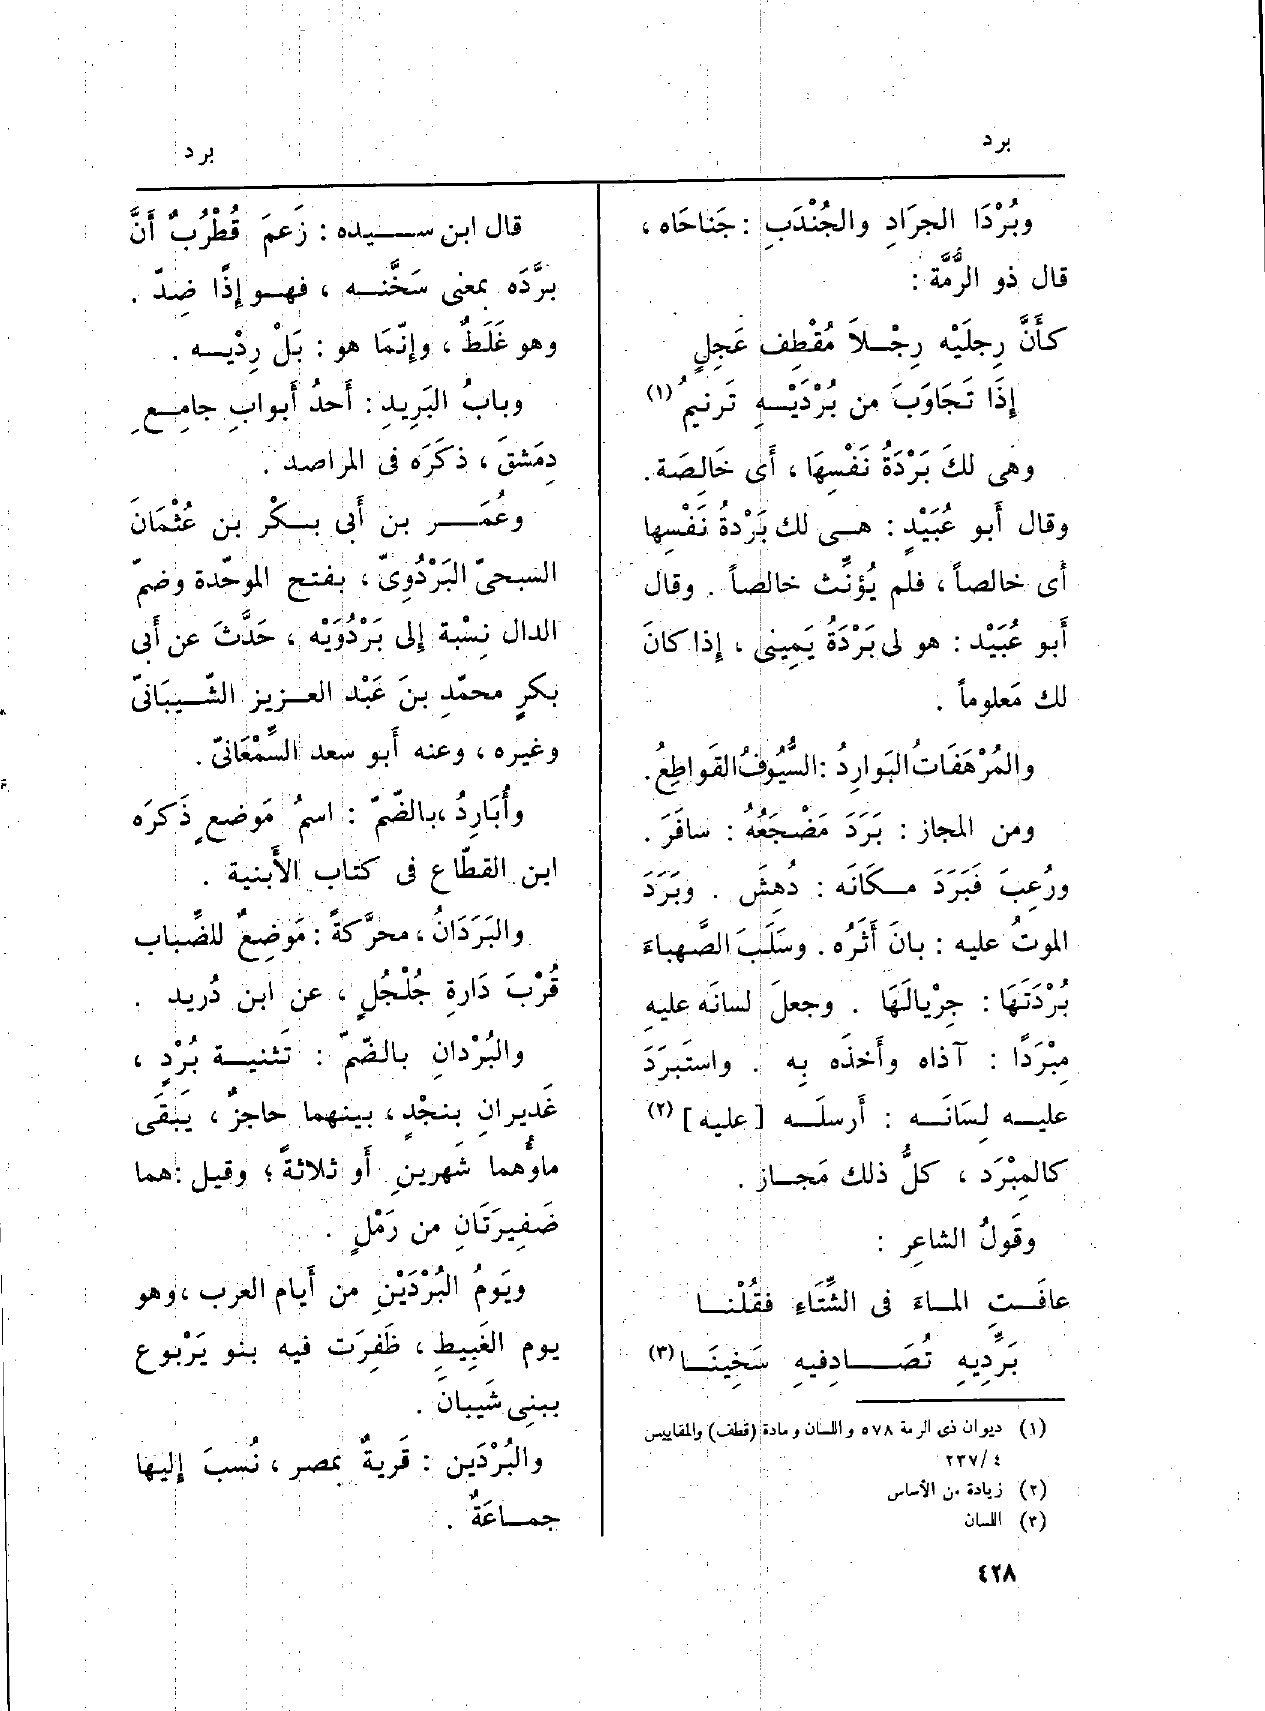 برد
برد
وبُرْدَا الجرَادِ والجُنْدَبِ : جَناحَاه ،
قال ذو الرُّمَّة :
كأَنَّ رِجلَيْه رِجْلاَ مُقْطِف عَجِلٍ
إِذَا تَجَاوَبَ من بُرْدَيْهِ تَرنيمُ (١)
وهى لكَ بَرْدَةُ نَفْسِهَا ، أَى خَالِصَة .
وقال أَبو عُبَيْدٍ : هى لك بَرْدةُ نَفْسِها
أَى خالصاً ، فلم يُؤنِّث خالصاً . وقال
أَبو عُبَيْد : هو لى بَرْدَةُ يَمِينى ، إِذا كانَ
لك مَعلوماً .
والمُرْهَفَاتُ البَوارِدُ : السُّيُوفُ القَواطِعُ .
ومن المجاز : بَرَدَ مَضْجَعُهُ : سافَرَ .
ورُعِبَ فَبَرَدَ مكَانَه : دُهِشَ . وبَرَدَ
الموتُ عليه : بانَ أَثَرُه . وسَلَبَ الصَّهباءَ
بُرْدَتَهَا : جِرْيالَهَا . وجعلَ لسانَه عليهِ
مِبْرَدًا : آذاه وأَخذَه بِه . واستَبرَدَ
عليه لِسَانَه : أَرسلَه [ عليه ] (٢)
كالمِبْرَد ، كلُّ ذلك مَجاز .
وقَولُ الشاعرِ :
عافَتِ الماءَ فى الشِّتَاءِ فقُلْنا
بَرِّدِيهِ تُصَادِفيهِ سَخِينَا (٣)
(١) ديوان ذى الرمة ٥٧٨ واللسان ومادة (قطف) والمقاييس
٤ /٢٣٧
(٢) زيادة من الأساس
(٣) اللسان
قال ابن سيده : زَعمَ قُطْرُبٌ أَنَّ
برَّدَه بمعنى سَخَّنه ، فهو إِذًا ضِدّ .
وهو غَلَطٌ ، وإِنّمَا هو : بَلْ رِدْيه .
وبابُ البَرِيدِ : أَحدُ أَبوابِ جامِعِ
دِمَشقَ ، ذكَرَه فى المراصد .
وعُمَر بن أَبى بكْر بن عُثْمَانَ
السبحىّ البَرْدُوِىّ ، بفتح الموحّدة وضمّ
الدال نِسْبة إِلى بَرْدُوَيْه ، حَدَّثَ عن أَبى
بكرٍ محمّدِ بنَ عَبْد العزيز الشّيبَانىّ
وغيره ، وعنه أَبو سعد السِّمْعَانىّ .
وأُبَارِدُ ، بالضّمّ : اسمُ مَوضعٍ ذَكرَه
ابن القطّاع فى كتاب الأَبنية .
والبَرَدَانُ ، محرَّكةً : مَوضِعٌ للضِّباب
قُرْبَ دَارةِ جُلْجُلٍ ، عن ابن دُريد .
والبُرْدانِ بالضّمّ : تَثنية بُرْدٍ ،
غَديرانِ بنجْدٍ ، بينهما حاجزٌ ، يَبقَى
ماؤُهما شهرينِ أَو ثلاثةً ؛ وقيل : هما
ضَفِيرَتَانِ من رَمْلٍ .
ويَومُ البُرْدَيْنِ من أَيام العرب ، وهو
يوم الغَبِيطِ ، ظَفِرَت فيه بنو يَرْبوع
ببنِى شَيبان .
والبُرْدَين : قَريةٌ بمصر ، نُسبَ إِليها
جماعَةٌ .
٤٢٨